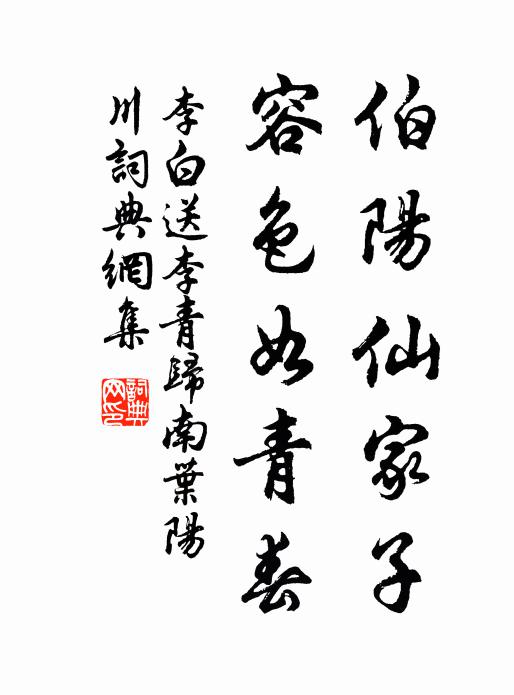 伯陽仙家子
容色如青春
李白送李青歸南葉陽
川詞典網集
詞典
网印